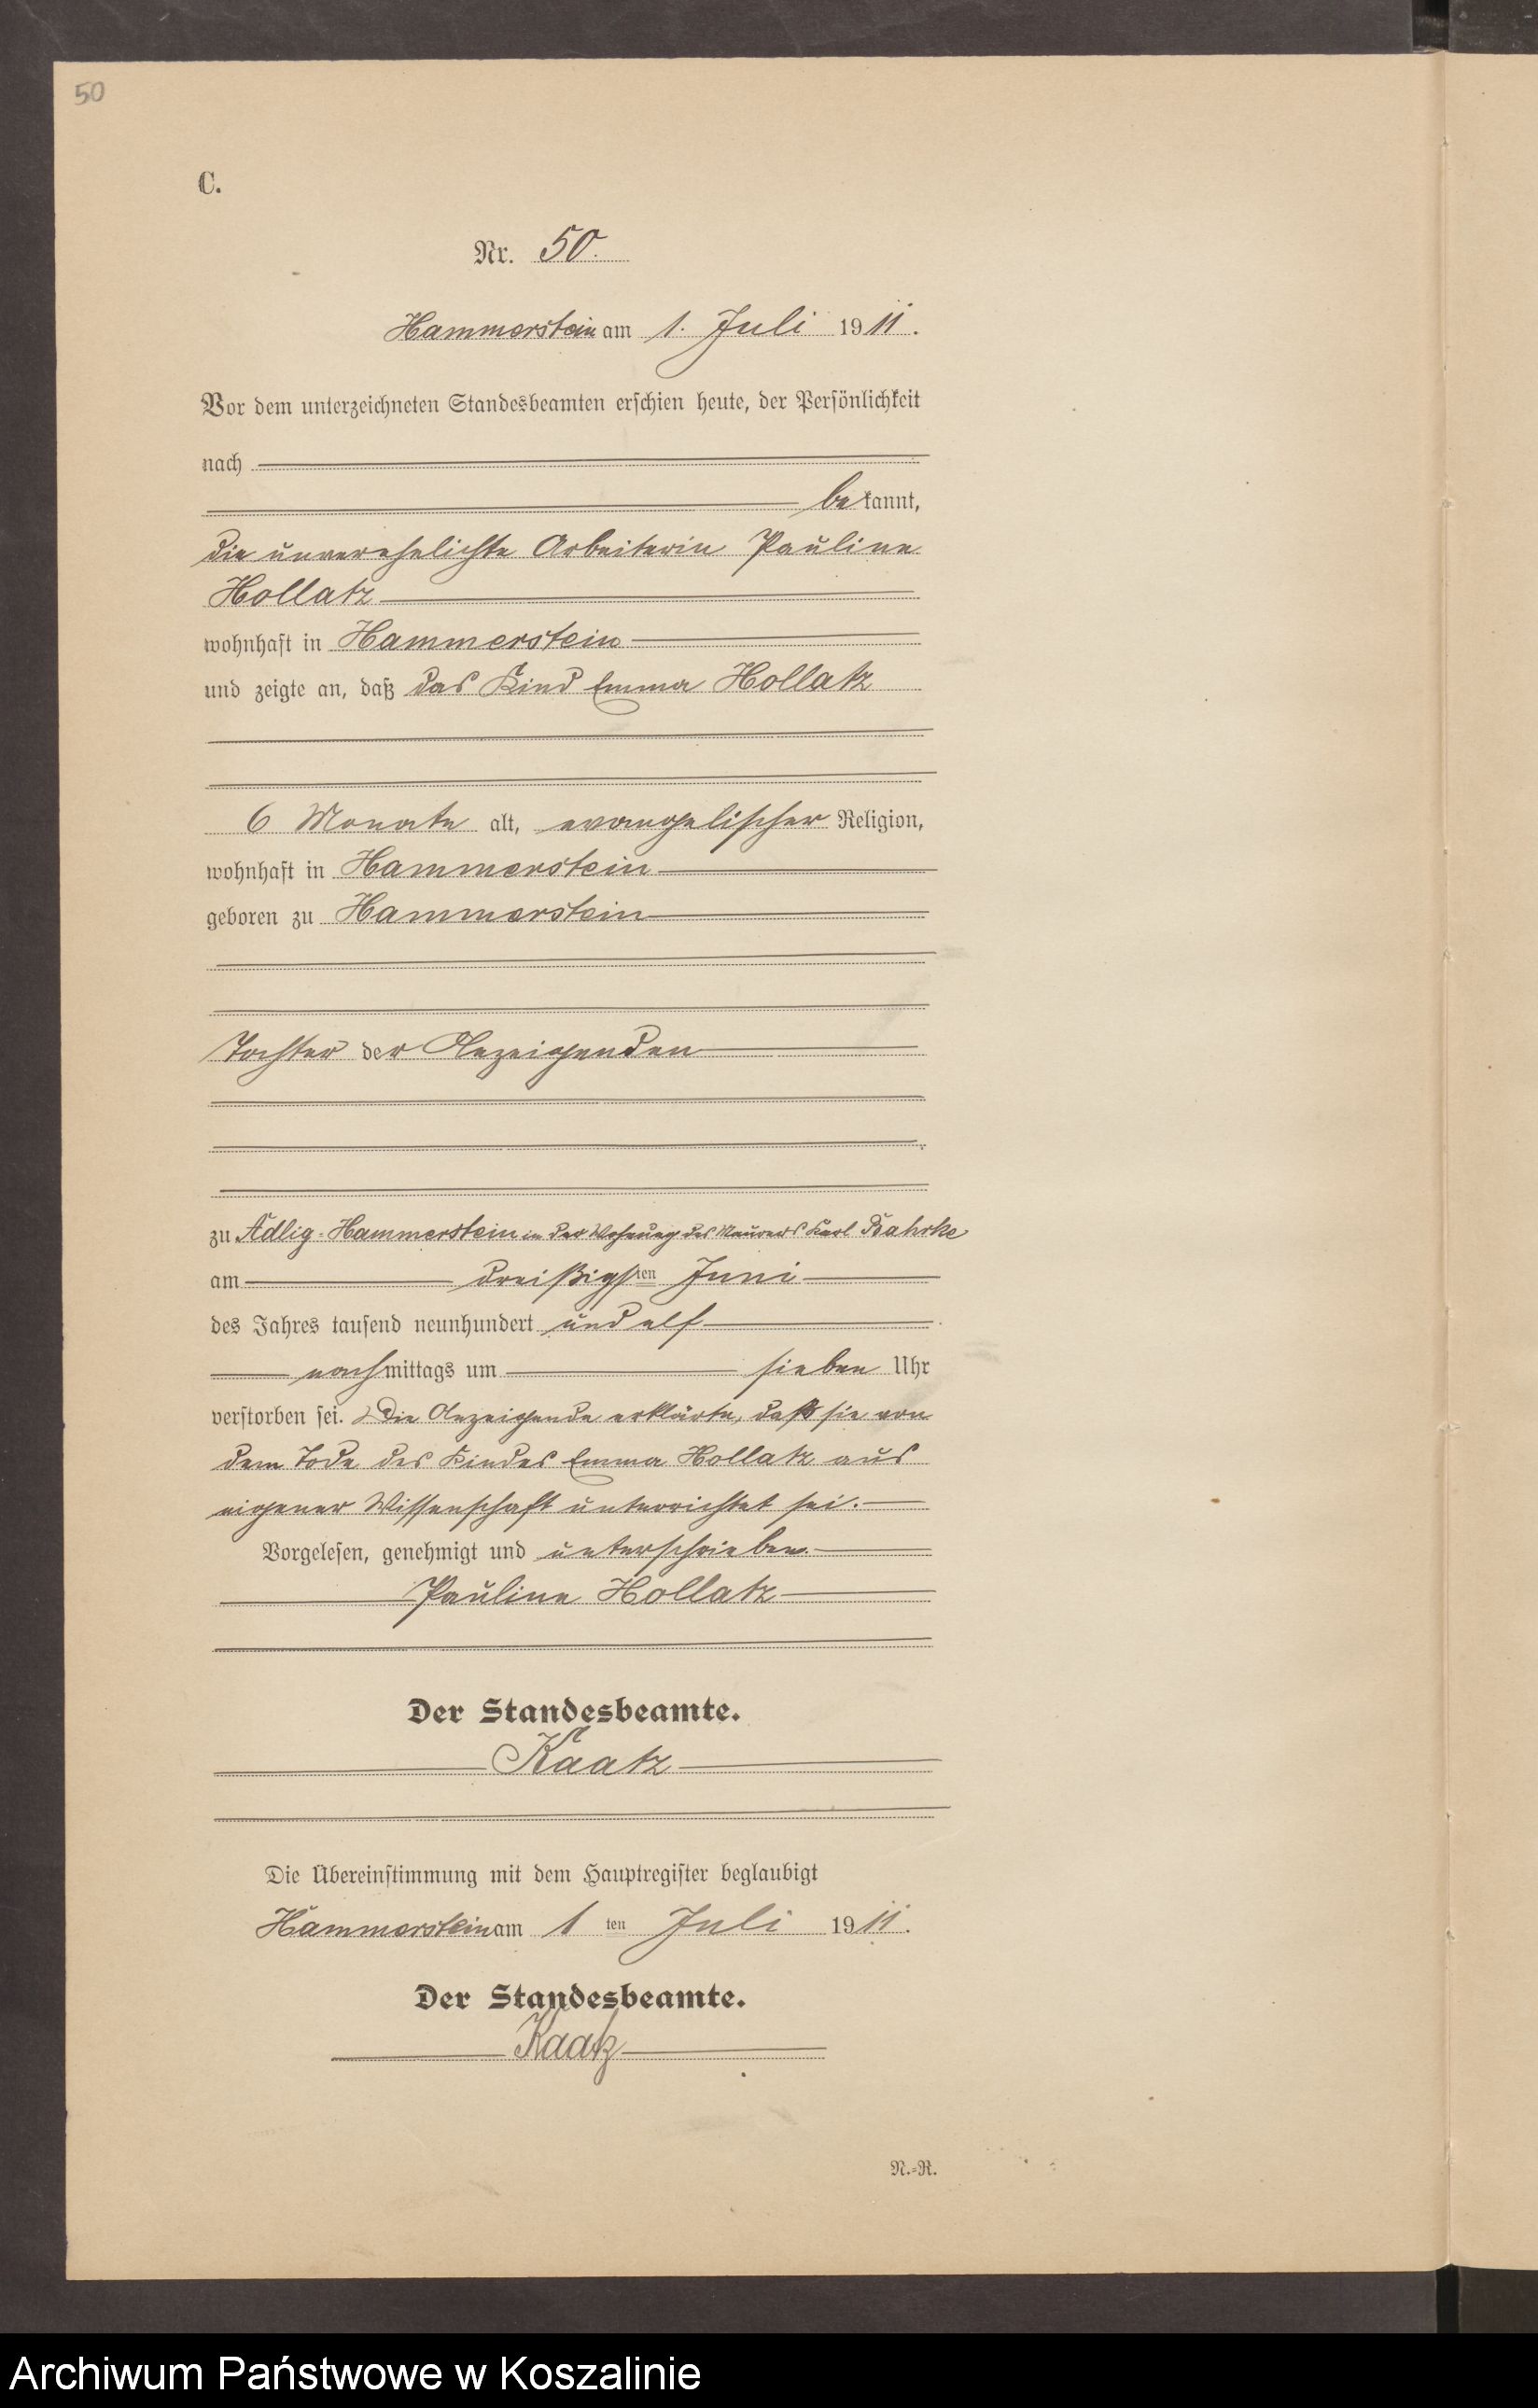 50
C.
Nr. 50.
Hammerstein am 1. Juli 1911.
Vor dem unterzeichneten Standesbeamten erschien heute, der Persönlichkeit
nach
bekannt,
die unverehelichte Arbeiterin Pauline
Hollatz
wohnhaft in Hammerstein
und zeigte an, daß das Kind Emma Hollatz
6 Monate alt, evangelischer Religion,
wohnhaft in Hammerstein
geboren zu Hammerstein
Tochter der Anzeigenden
zu Adlig-Hammerstein in der Wohnung des Maurers Karl
am dreißigsten Juni
des Jahres tausend neunhundert und elf
nachmittags um sieben Uhr
verstorben sei. Die Anzeigende erklärte, daß sie von
dem Tode des Kindes Emma Hollatz aus
eigener Wissenschaft unterrichtet sei.
Vorgelesen, genehmigt und unterschrieben.
Pauline Hollatz
Der Standesbeamte.
Kaatz
Die Übereinstimmung mit dem Hauptregister beglaubigt
Hammerstein am 1 ten Juli 1911.
Der Standesbeamte.
Kaatz
N.-R.
Archiwum Państwowe w Koszalinie